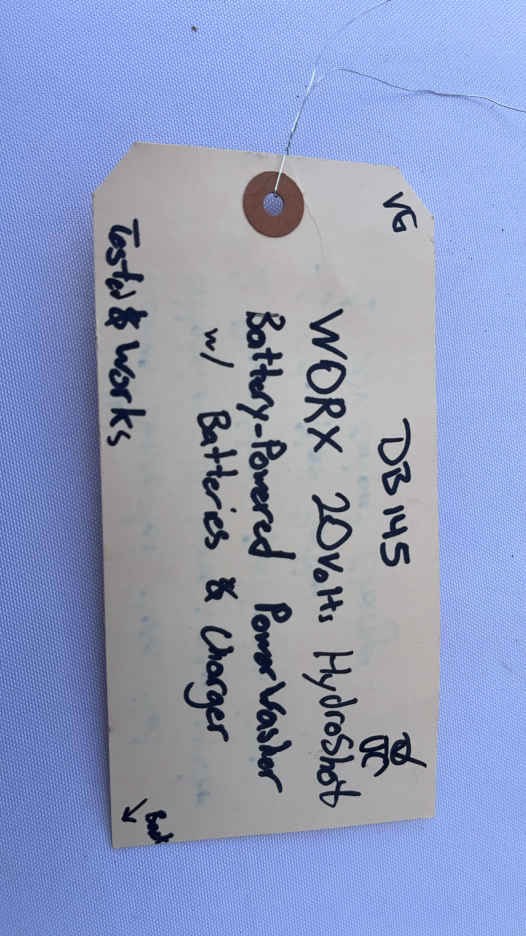 VG
DB145
DC
WORX 20Volts HydroShot
Battery-Powered Power Washer
w/ Batteries & Charger
Tested & Works
Back